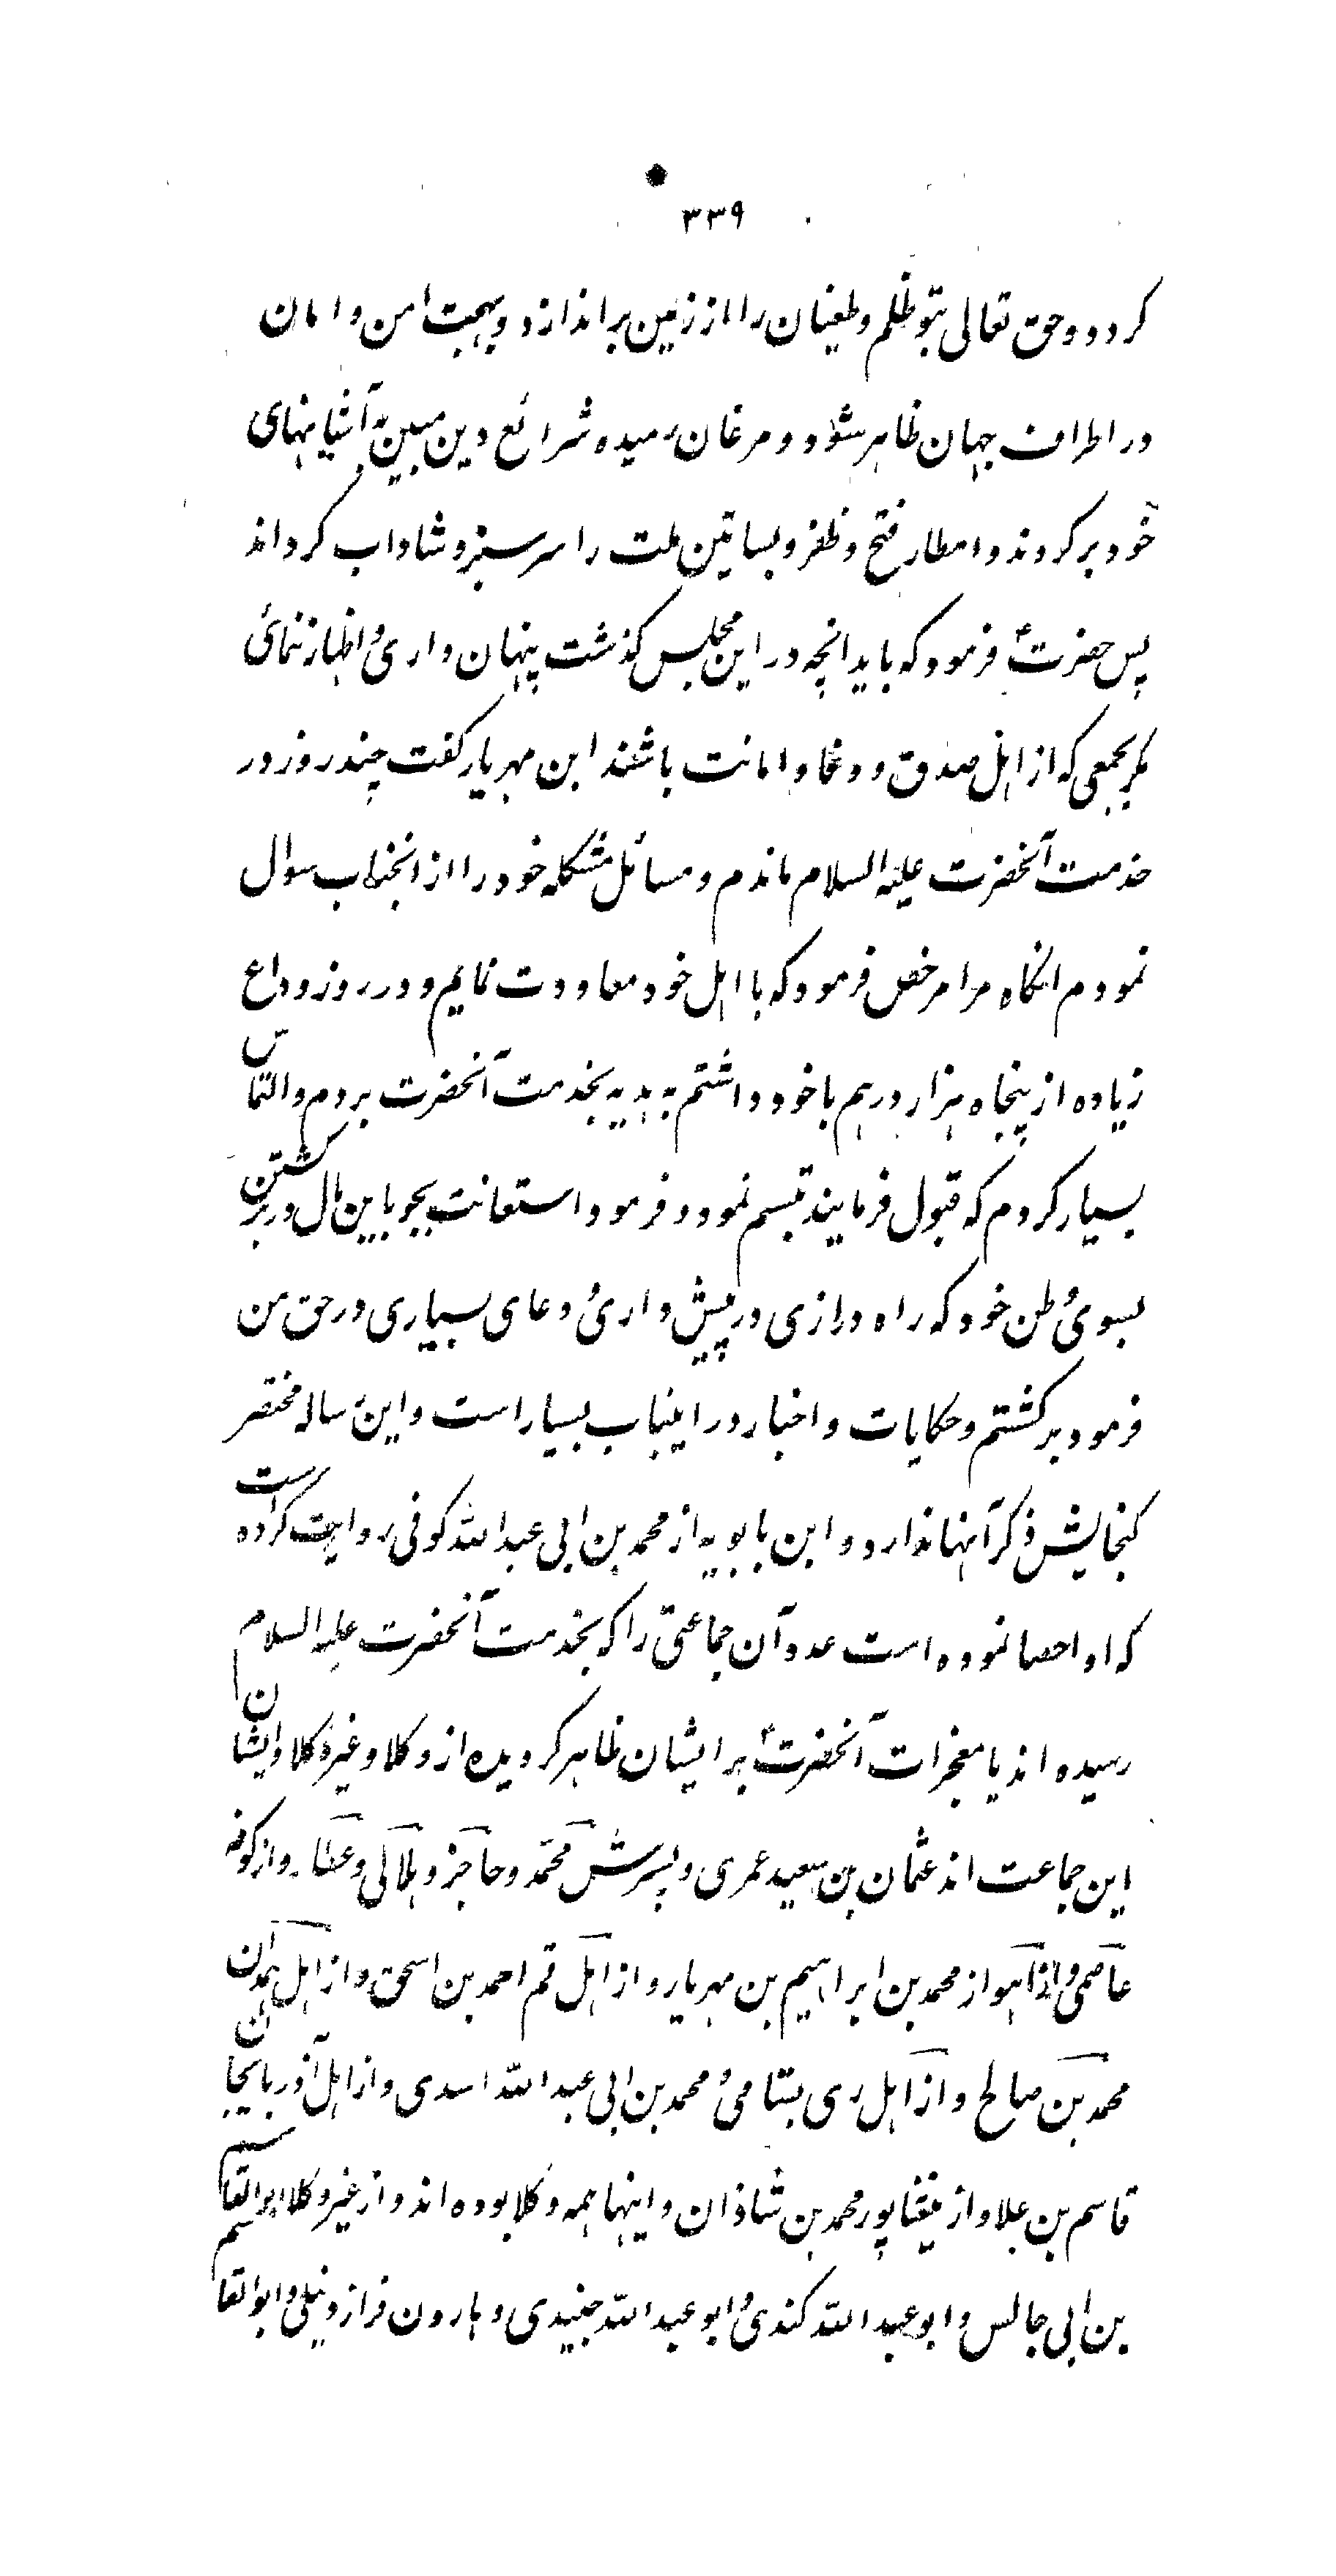 ۳۳۹
کردد و حق تعالی بتو ظلم و طغیان را از زمین براندازد و بهجت امن و امان
در اطراف جهان ظاهر شود و مرغان رمیده شرائع دین مبین بآشیانهای
خود برکردند و امطار فتح و ظفر و بساتین ملت را سرسبز و شاداب کرداند
پس حضرتؑ فرمود که باید انچه در این مجلس کذشت پنهان داری و اظهار ننمائی
مکر بجمعی که از اهل صدق و وفا و امانت باشند ابن مهریار کفت چند روز در
خدمت آنحضرت علیه السلام ماندم و مسائل مشکله خود را از انجناب سوال
نمودم انکاه مرا مرخص فرمود که با اهل خود معاودت نمایم و در روز وداع
زیاده از پنجاه هزار درهم با خود داشتم بهدیه بخدمت آنحضرت بردم و التماس
بسیار کردم که قبول فرمایند تبسم نمود و فرمود استعانت بجو باین مال در برکشتن
بسوی وطن خود که راه درازی در پیش داری و دعای بسیاری در حق من
فرمود برکشتم و حکایات و اخبار در اینباب بسیار است و این رساله مختصر
کنجایش ذکر آنها ندارد و ابن بابویه از محمد بن ابی عبدالله کوفی روایت کرده است
که او احصا نموده است عدد آن جماعتی را که بخدمت آنحضرت علیه السلام
رسیده اند یا معجزات آنحضرتؑ بر ایشان ظاهر کردیده از وکلا و غیر وکلا و ایشان
این جماعت اند عثمان بن سعید عمری و پسرش محمد و حاجز و بلالی و عطار و از کوفه
عاصمی و از اهواز محمد بن ابراهیم بن مهریار و از اهل قم احمد بن اسحق و از اهل همدان
محمد بن صالح و از اهل ری بسامی و محمد بن ابی عبدالله اسدی و از اهل آذربایجان
قاسم بن علا و از نیشاپور محمد بن شاذان و اینها همه وکلا بوده اند و از غیر وکلا ابوالقاسم
بن ابی جالس و ابو عبدالله کندی و ابو عبدالله جنیدی و هارون قزاز و نیلی و ابوالقاسم